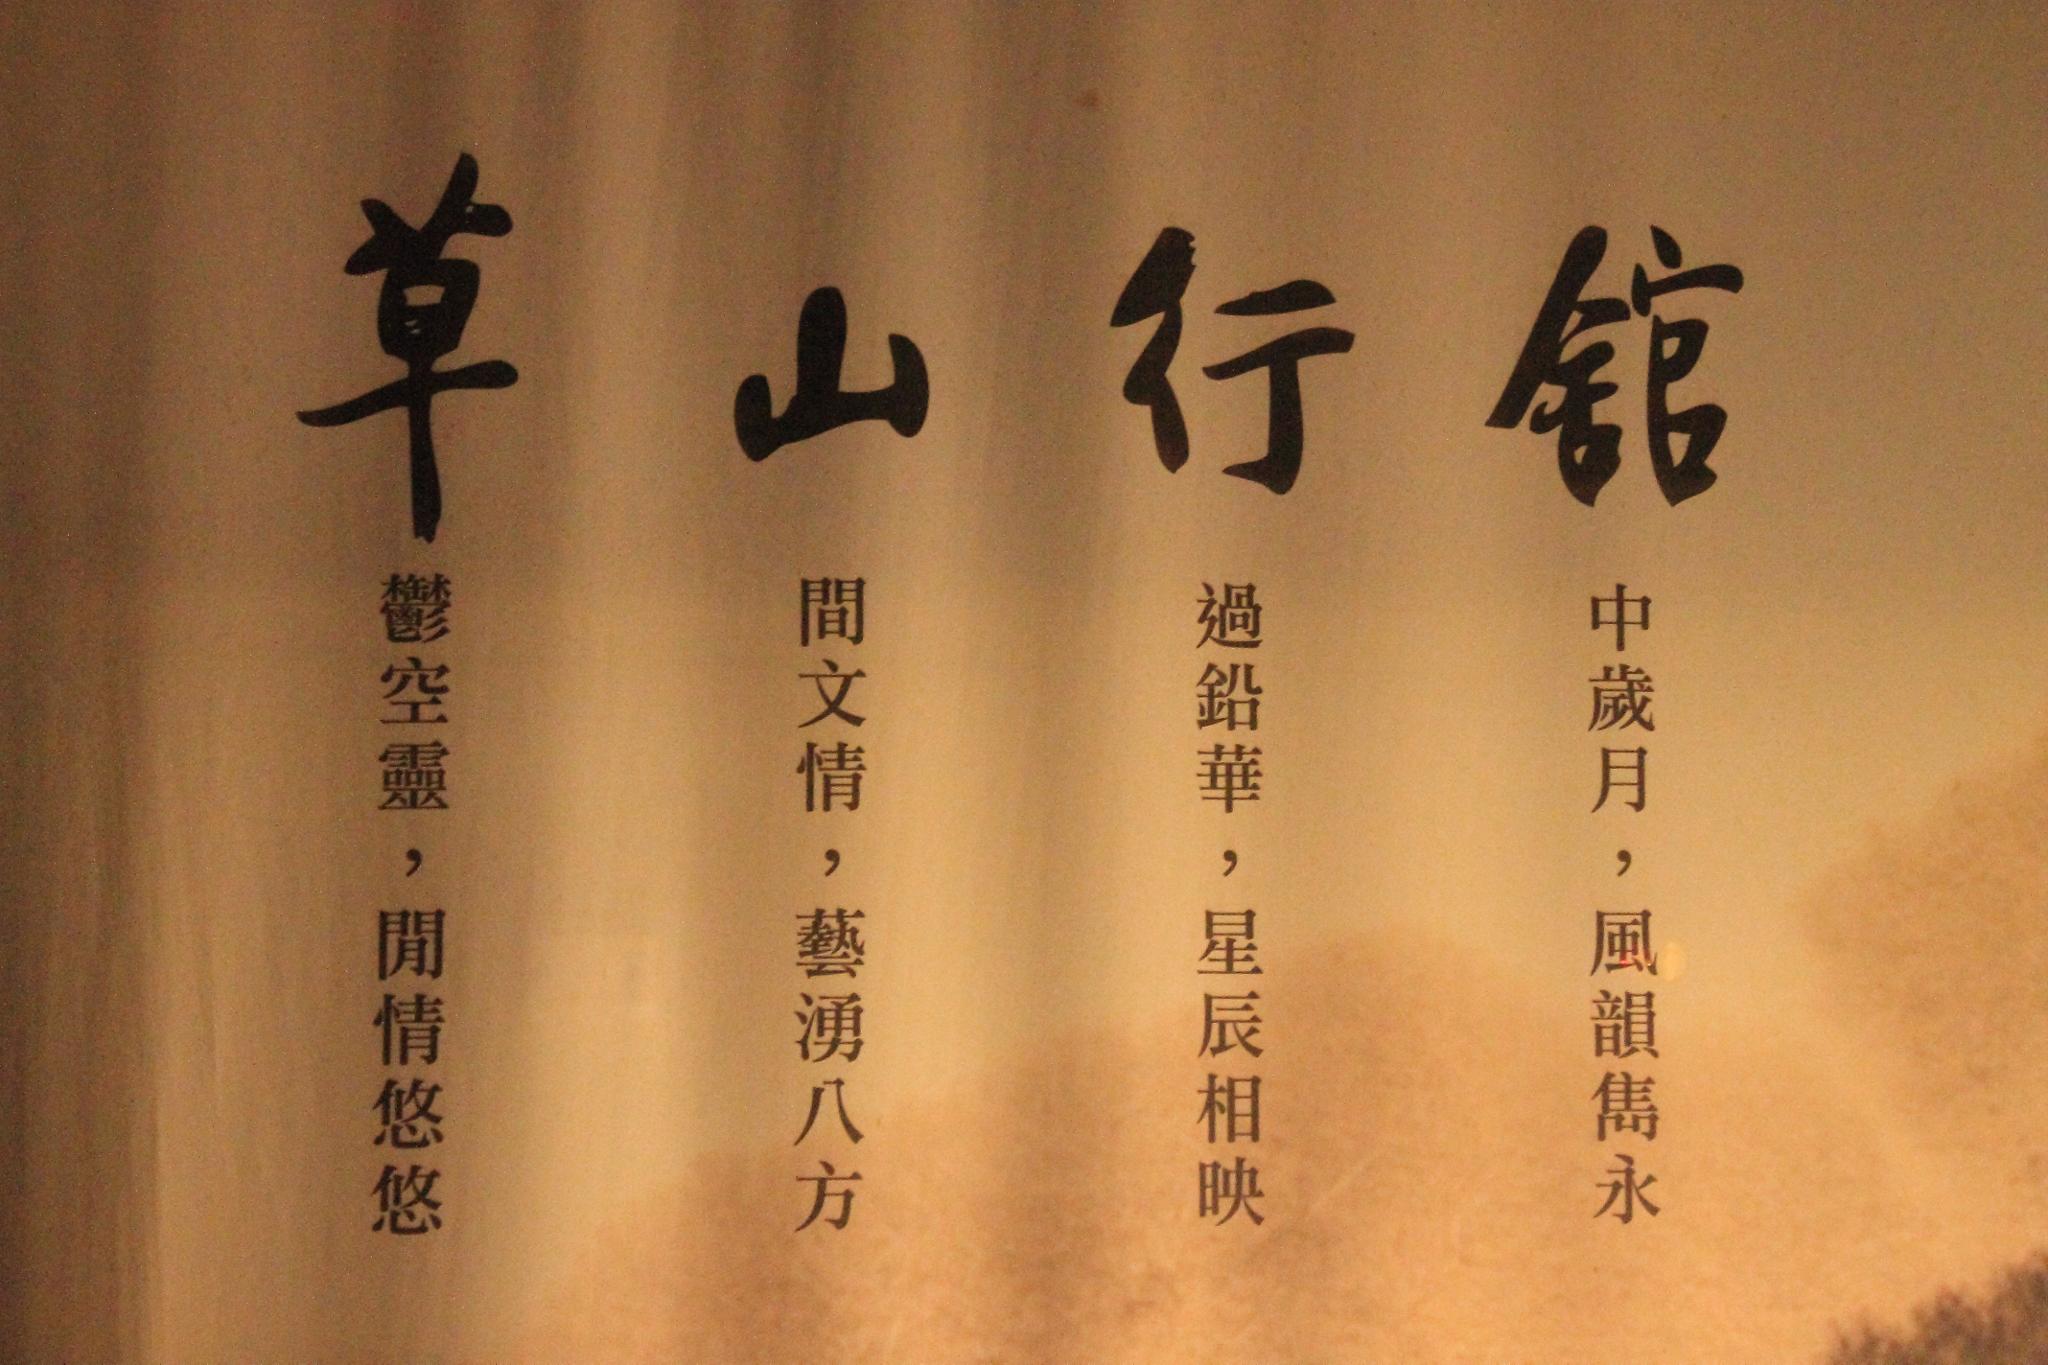 草山行館
鬱空靈，閒情悠悠
間文情，藝湧八方
過鉛華，星辰相映
中歲月，風韻雋永